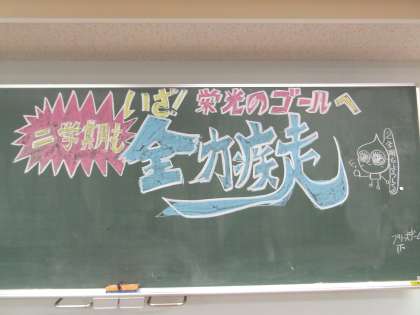 いざ!栄光のゴールへ
二学期も
全力疾走